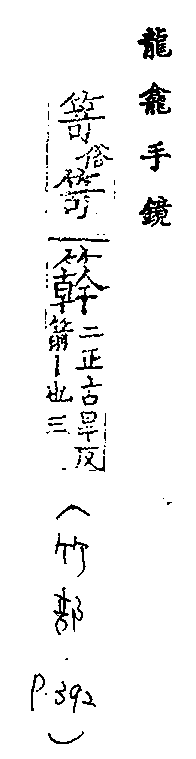 龍龕手鏡
俗笴簳二正古旱反
箭丨也三
(竹部.
P.392)